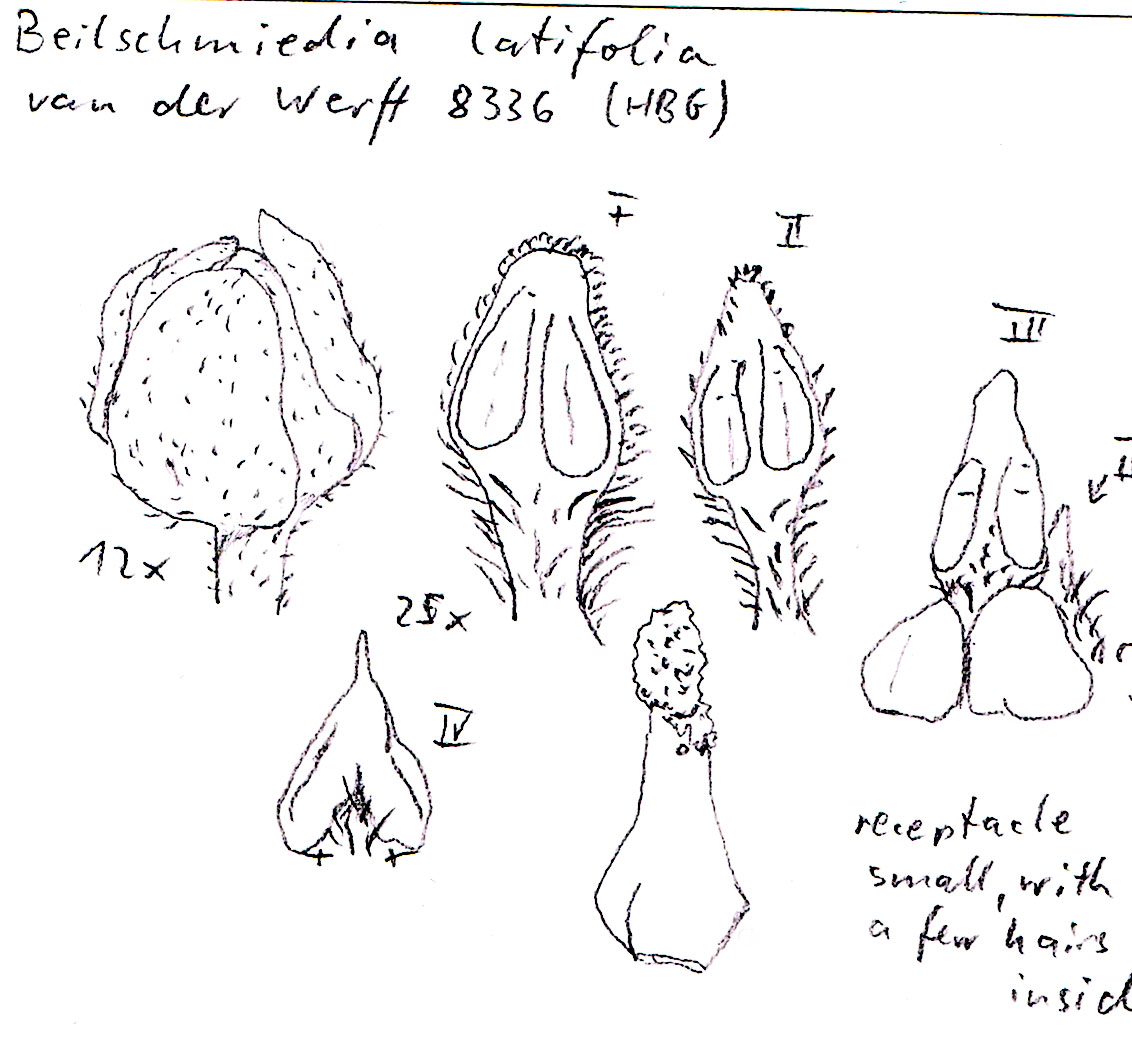 Beilschmiedia latifolia
van der Werff 8336 (HBG)
I
II
III
12x
25x
IV
receptacle
small, with
a few hairs
insid